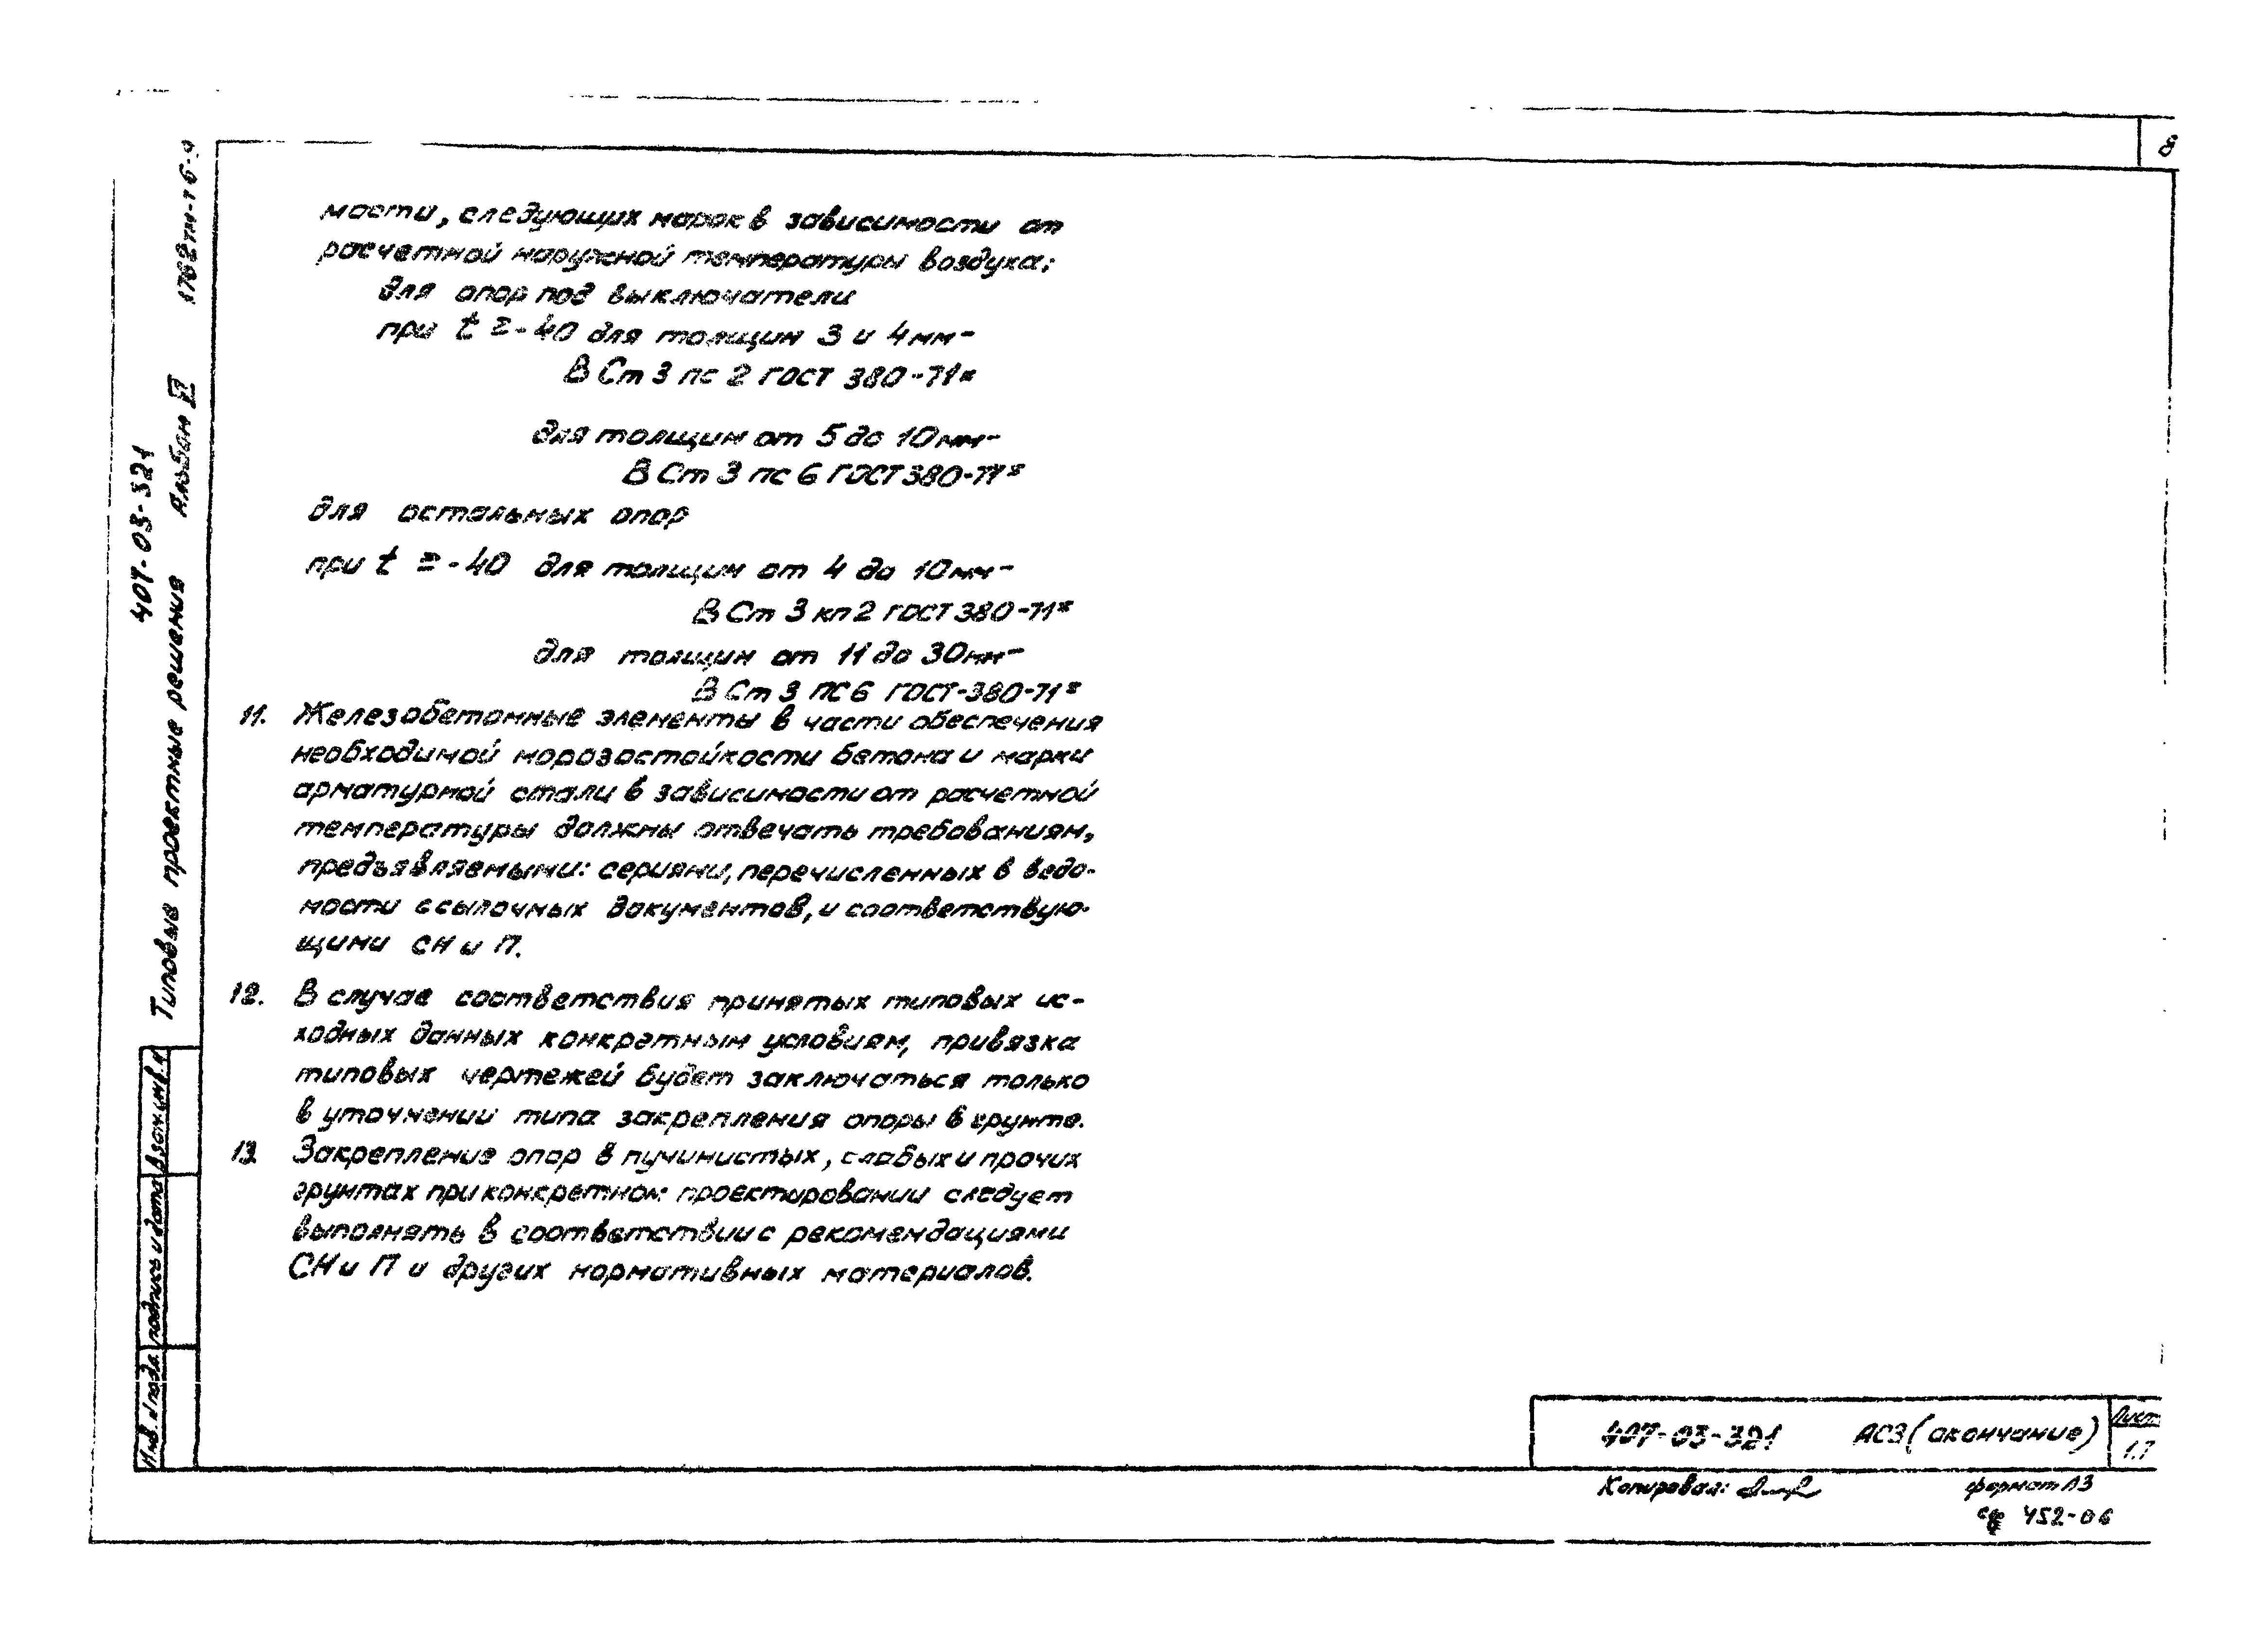 8
мости, следующих марок в зависимости от
расчетной наружной температуры воздуха:
для опор под выключатели
при t ≥ -40 для толщин 3 и 4мм-
В Ст 3 пс 2 ГОСТ 380-71*
для толщин от 5 до 10мм-
В Ст 3 пс 6 ГОСТ 380-71*
для остальных опор
при t ≥ -40 для толщин от 4 до 10мм-
В Ст 3 кп 2 ГОСТ 380-71*
для толщин от 11 до 30мм-
В Ст 3 пс 6 ГОСТ-380-71*
11. Железобетонные элементы в части обеспечения
необходимой морозостойкости бетона и марки
арматурной стали в зависимости от расчетной
температуры должны отвечать требованиям,
предъявляемыми: сериями, перечисленных в ведо-
мости ссылочных документов, и соответствую-
щими СН и П.
12. В случае соответствия принятых типовых ис-
ходных данных конкретным условиям, привязка
типовых чертежей будет заключаться только
в уточнении типа закрепления опоры в грунте.
13 Закрепление опор в пучинистых, слабых и прочих
грунтах при конкретном проектировании следует
выполнять в соответствии с рекомендациями
СН и П и других нормативных материалов.
407-03-321
Типовые проектные решения Альбом VI
Взам.инв.
подпись и дата
Инв. подл
407-03-321 АС3 (окончание)
Лист
1.7
Копировал: формат А3
сф 452-06